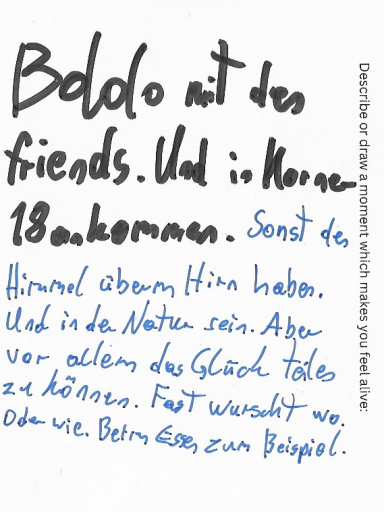 Describe or draw a moment which makes you feel alive:
Bololo mit den
friends. Und in Korner
18 ankommen. Sonst den
Himmel überm Hirn haben.
Und in der Natur sein. Aber
vor allem das Glück teiles
zu können. Fast wurscht wo.
Oder wie. Beim Essen zum Beispiel.